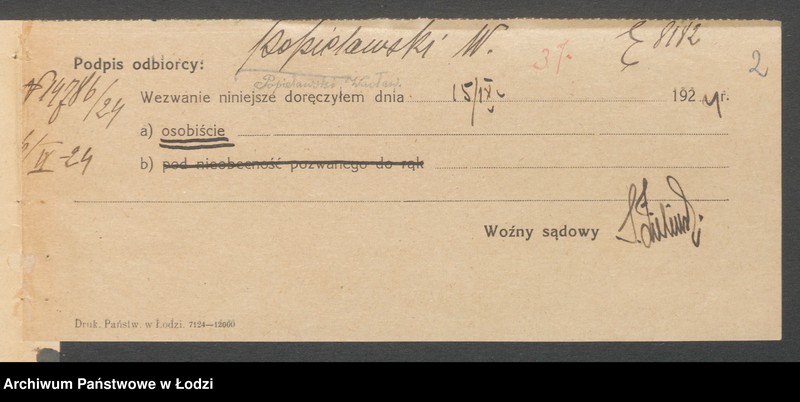 Podpis odbiorcy: Popielawski W. 3/. E 8182 2
Popielawski Wacław.
Nº 14786/24
Wezwanie niniejsze doręczyłem dnia 15/IX 1924 r.
a) osobiście
/IX-24
b) pod nieobecność pozwanego do rąk
Woźny sądowy
Druk. Państw. w Łodzi. 7124—12000
Archiwum Państwowe w Łodzi